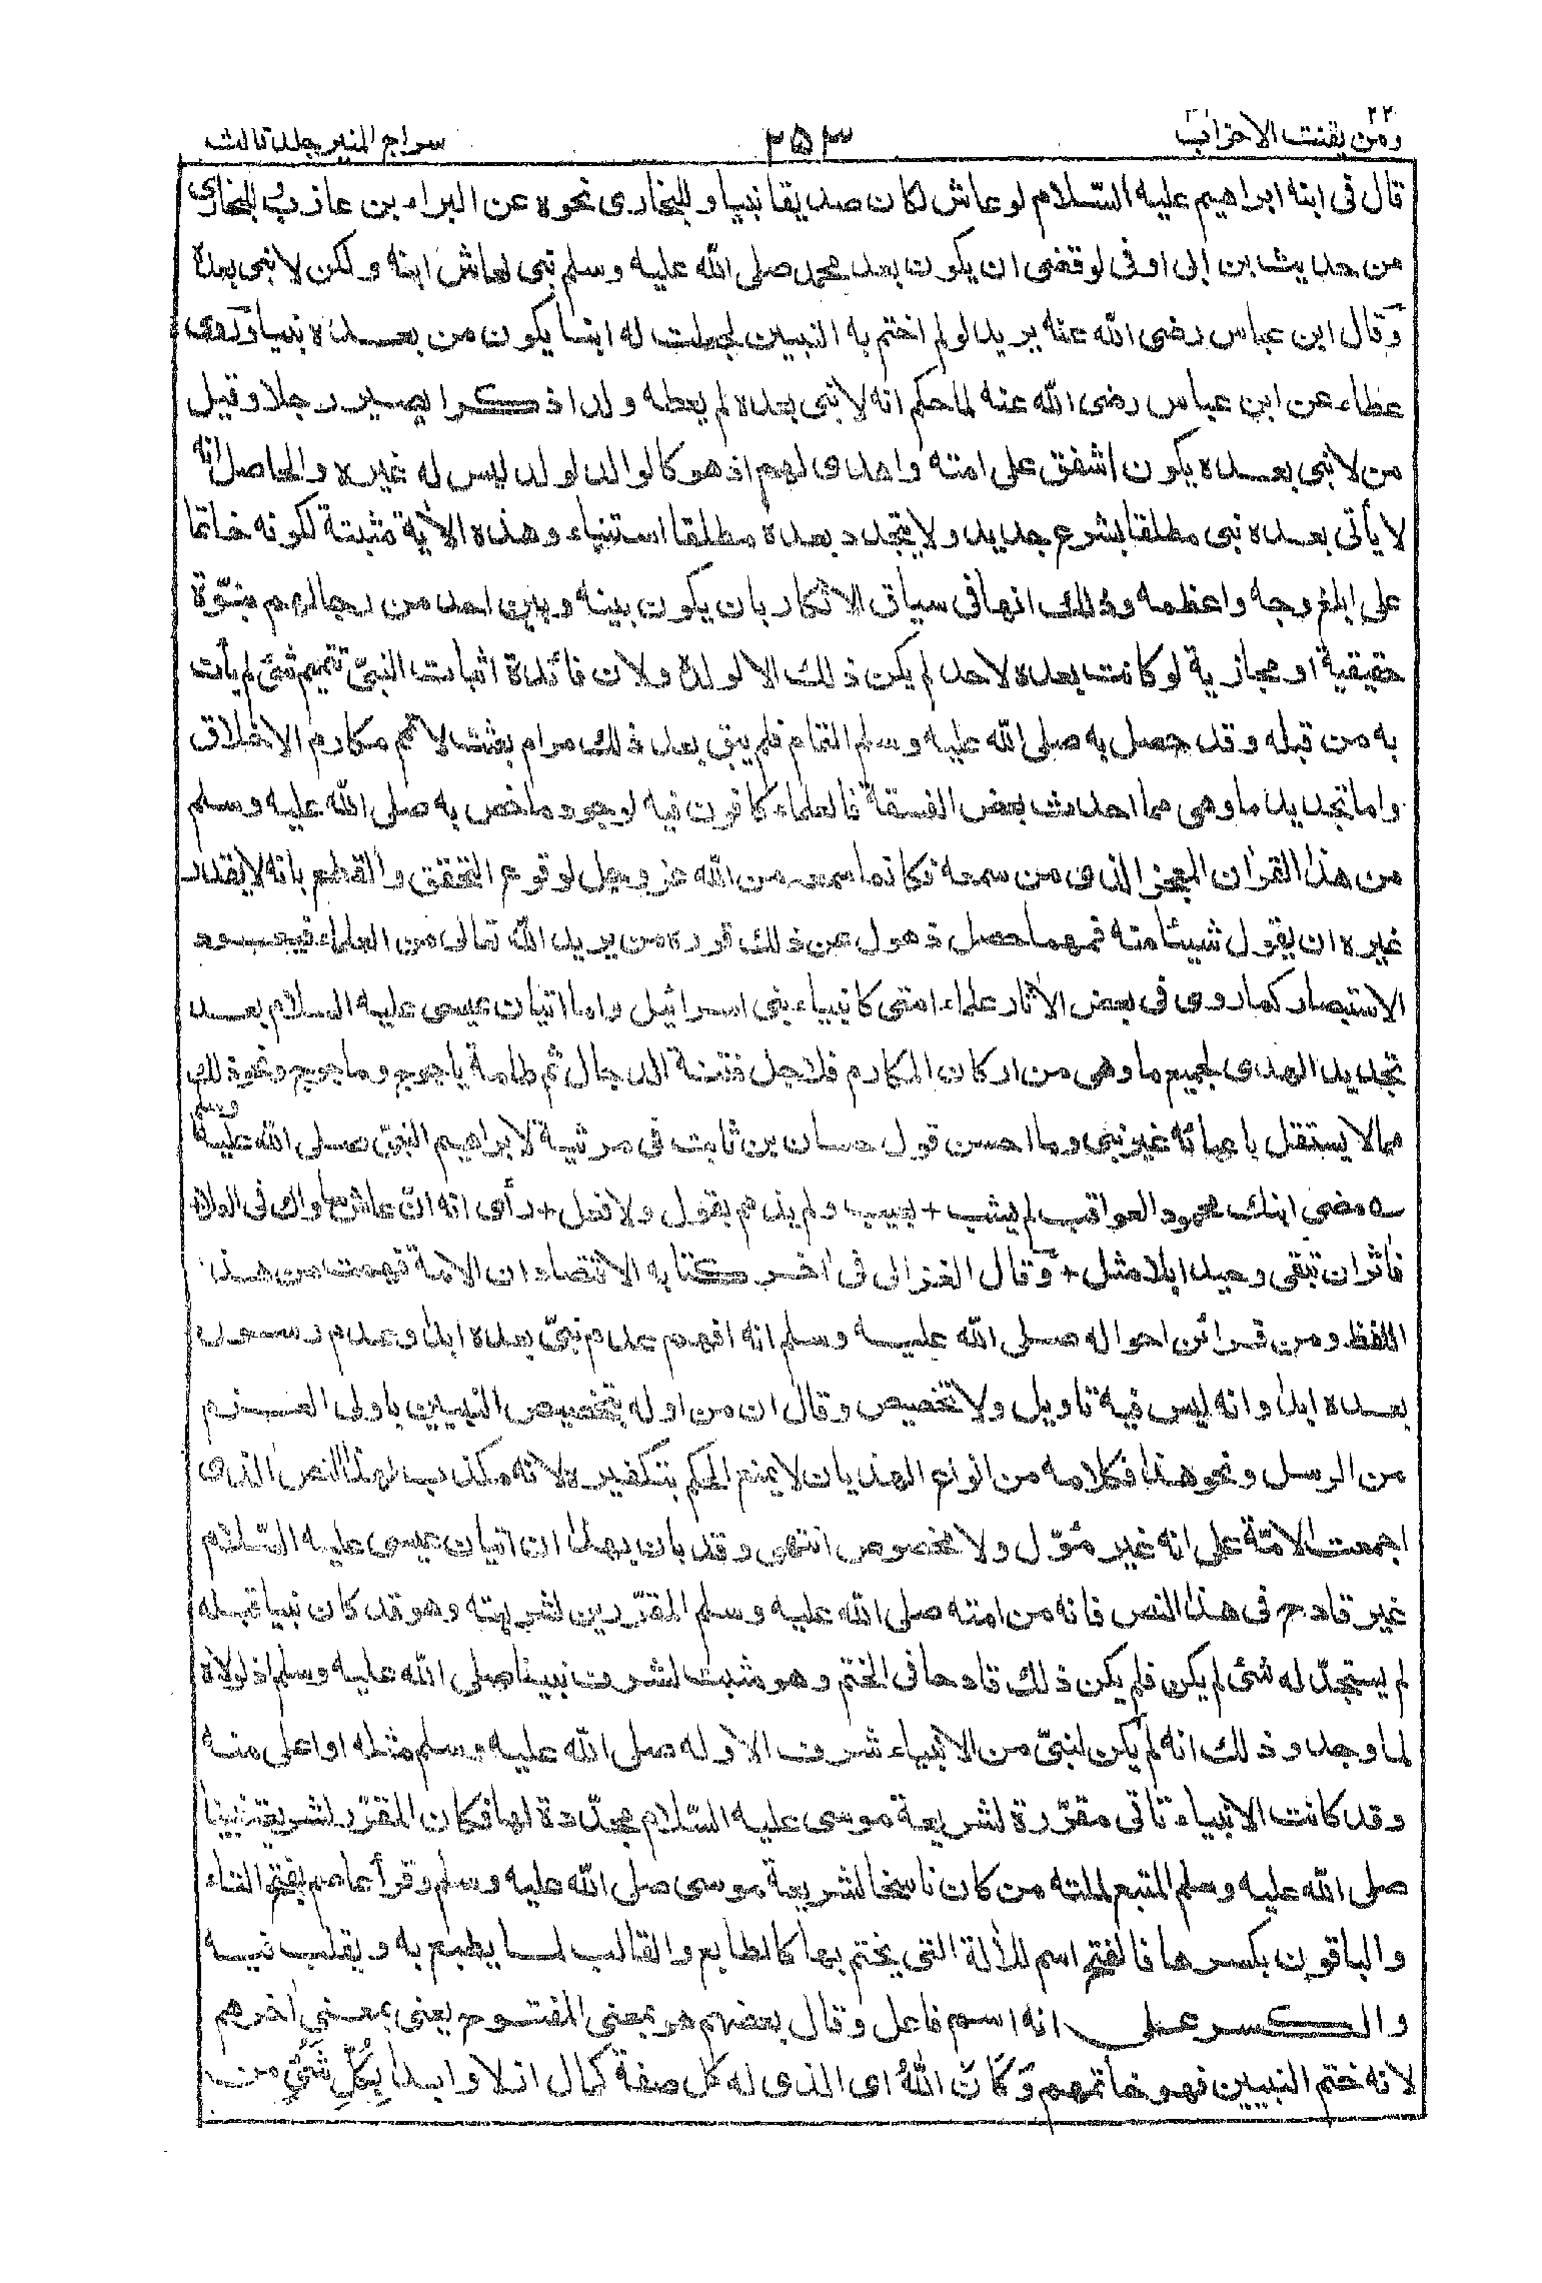 ۲۲
ومن يقنت الاحزاب
۲۵۳
سراج المنير جلد ثالث
قال فى ابنه ابراهيم عليه السّلام لو عاش لكان صديقا نبيا وللبخارى نحوه عن البراء بن عازب وللبخارى
من حديث بن ابى اوفى لو قضى ان يكون بعد محمد صلى الله عليه وسلم نبى لعاش ابنه ولكن لا نبى بعده
وقال ابن عباس رضى الله عنه يريد لو لم اختم به النبيين لجعلت له ابنا يكون من بعده نبيا وروى
عطاء عن ابن عباس رضى الله عنه لما حكم انه لا نبى بعده لم يعطه ولدا ذكرا يصير رجلا وقيل
من لا نبى بعده يكون اشفق على امته واهدى لهم اذ هو كالوالد لولد ليس له غيره والحاصل انه
لا يأتى بعده نبى مطلقا بشرع جديد ولا يتجدد بعده مطلقا استنباء وهذه الاٰية مثبتة لكونه خاتما
على ابلغ وجه واعظمه وذلك انها فى سياق الانكار بان يكون بينه وبين احد من رجالهم بنوّة
حقيقية او مجازية لو كانت بعده لاحد لم يكن ذلك الا لولده ولان فائدة اثبات النبىّ تتميم شئ لم يأت
به من قبله وقد حصل به صلى الله عليه وسلم التمام فلم يبق بعد ذلك مرام بعثت لاتمم مكارم الاخلاق
واما تجديد ما وهى مما احدث بعض الفسقة فالعلماء كافون فيه لوجود ما خص به صلى الله عليه وسلم
من هذا القراٰن المعجز الذى من سمعه فكانما سمعه من الله عز وجل لوقوع التحقق والقطع بانه لا يقدر
غيره ان يقول شيئا منه فمهما حصل ذهول عن ذلك قرره من يريد الله تعالى من العلماء فيعود
الاستبصار كما روى فى بعض الاٰثار علماء امتى كانبياء بنى اسرائيل واما اتيان عيسى عليه السلام بعد
تجديد الهدى لجميع ما وهى من اركان المكارم فلاجل فتنة الدجال ثم طامة ياجوج وماجوج ونحو ذلك
مما لا يستقل باعبائه غير نبى وما احسن قول حسان بن ثابت فى مرثية لابراهيم ابن النبىّ صلى الله عليه وسلم
ے مضى ابنك محمود العواقب لم يشب + بعيب ولم يذمم بقول ولا فعل + رأى انه ان عاش ساواك فى العلا
فاٰثر ان تبقى وحيدا بلا مثل + وقال الغزالى فى اٰخر كتابه الاقتصاد ان الامة فهمت من هذا
اللفظ ومن قرائن احواله صلى الله عليه وسلم انه افهم عدم نبىّ بعده ابدا وعدم رسول
بعده ابدا وانه ليس فيه تاويل ولا تخصيص وقال ان من اوله بتخصيص النبيين باولى العزم
من الرسل ونحو هذا فكلامه من انواع الهذيان لا يمنع الحكم بتكفيره لانه مكذب لهذا النص الذى
اجمعت الامّة على انه غير مئوّل ولا مخصوص انتهى وقد بان بهذا ان اتيان عيسى عليه السّلام
غير قادح فى هذا النص فانه من امته صلى الله عليه وسلم المقرّرين لشريعته وهو قد كان نبيا قبله
لم يستجدّ له شئ لم يكن فلم يكن ذلك قادحا فى الختم وهو مثبت لشرف نبينا صلى الله عليه وسلم اذ لولاه
لما وجد وذلك انه لم يكن لنبىّ من الانبياء شرف الا وله صلى الله عليه وسلم مثله او اعلى منه
وقد كانت الانبياء تاتى مقرّرة لشريعة موسى عليه السّلام مجدّدة لها فكان المقرّر لشريعة نبينا
صلى الله عليه وسلم المتبع لملته من كان ناسخا لشريعة موسى صلى الله عليه وسلم وقرأ عاصم بفتح التاء
والباقون بكسرها فالفتح اسم للاٰلة التى يختم بها كالطابع والقالب لما يطبع به ويقلب فيه
والكسر على انه اسم فاعل وقال بعضهم هو بمعنى المفتوح يعنى بمعنى اٰخرهم
لانه ختم النبيين فهو خاتمهم وَكَانَ اللهُ اى الذى له كل صفة كمال ازلا وابدا بِكُلِّ شَيْءٍ من